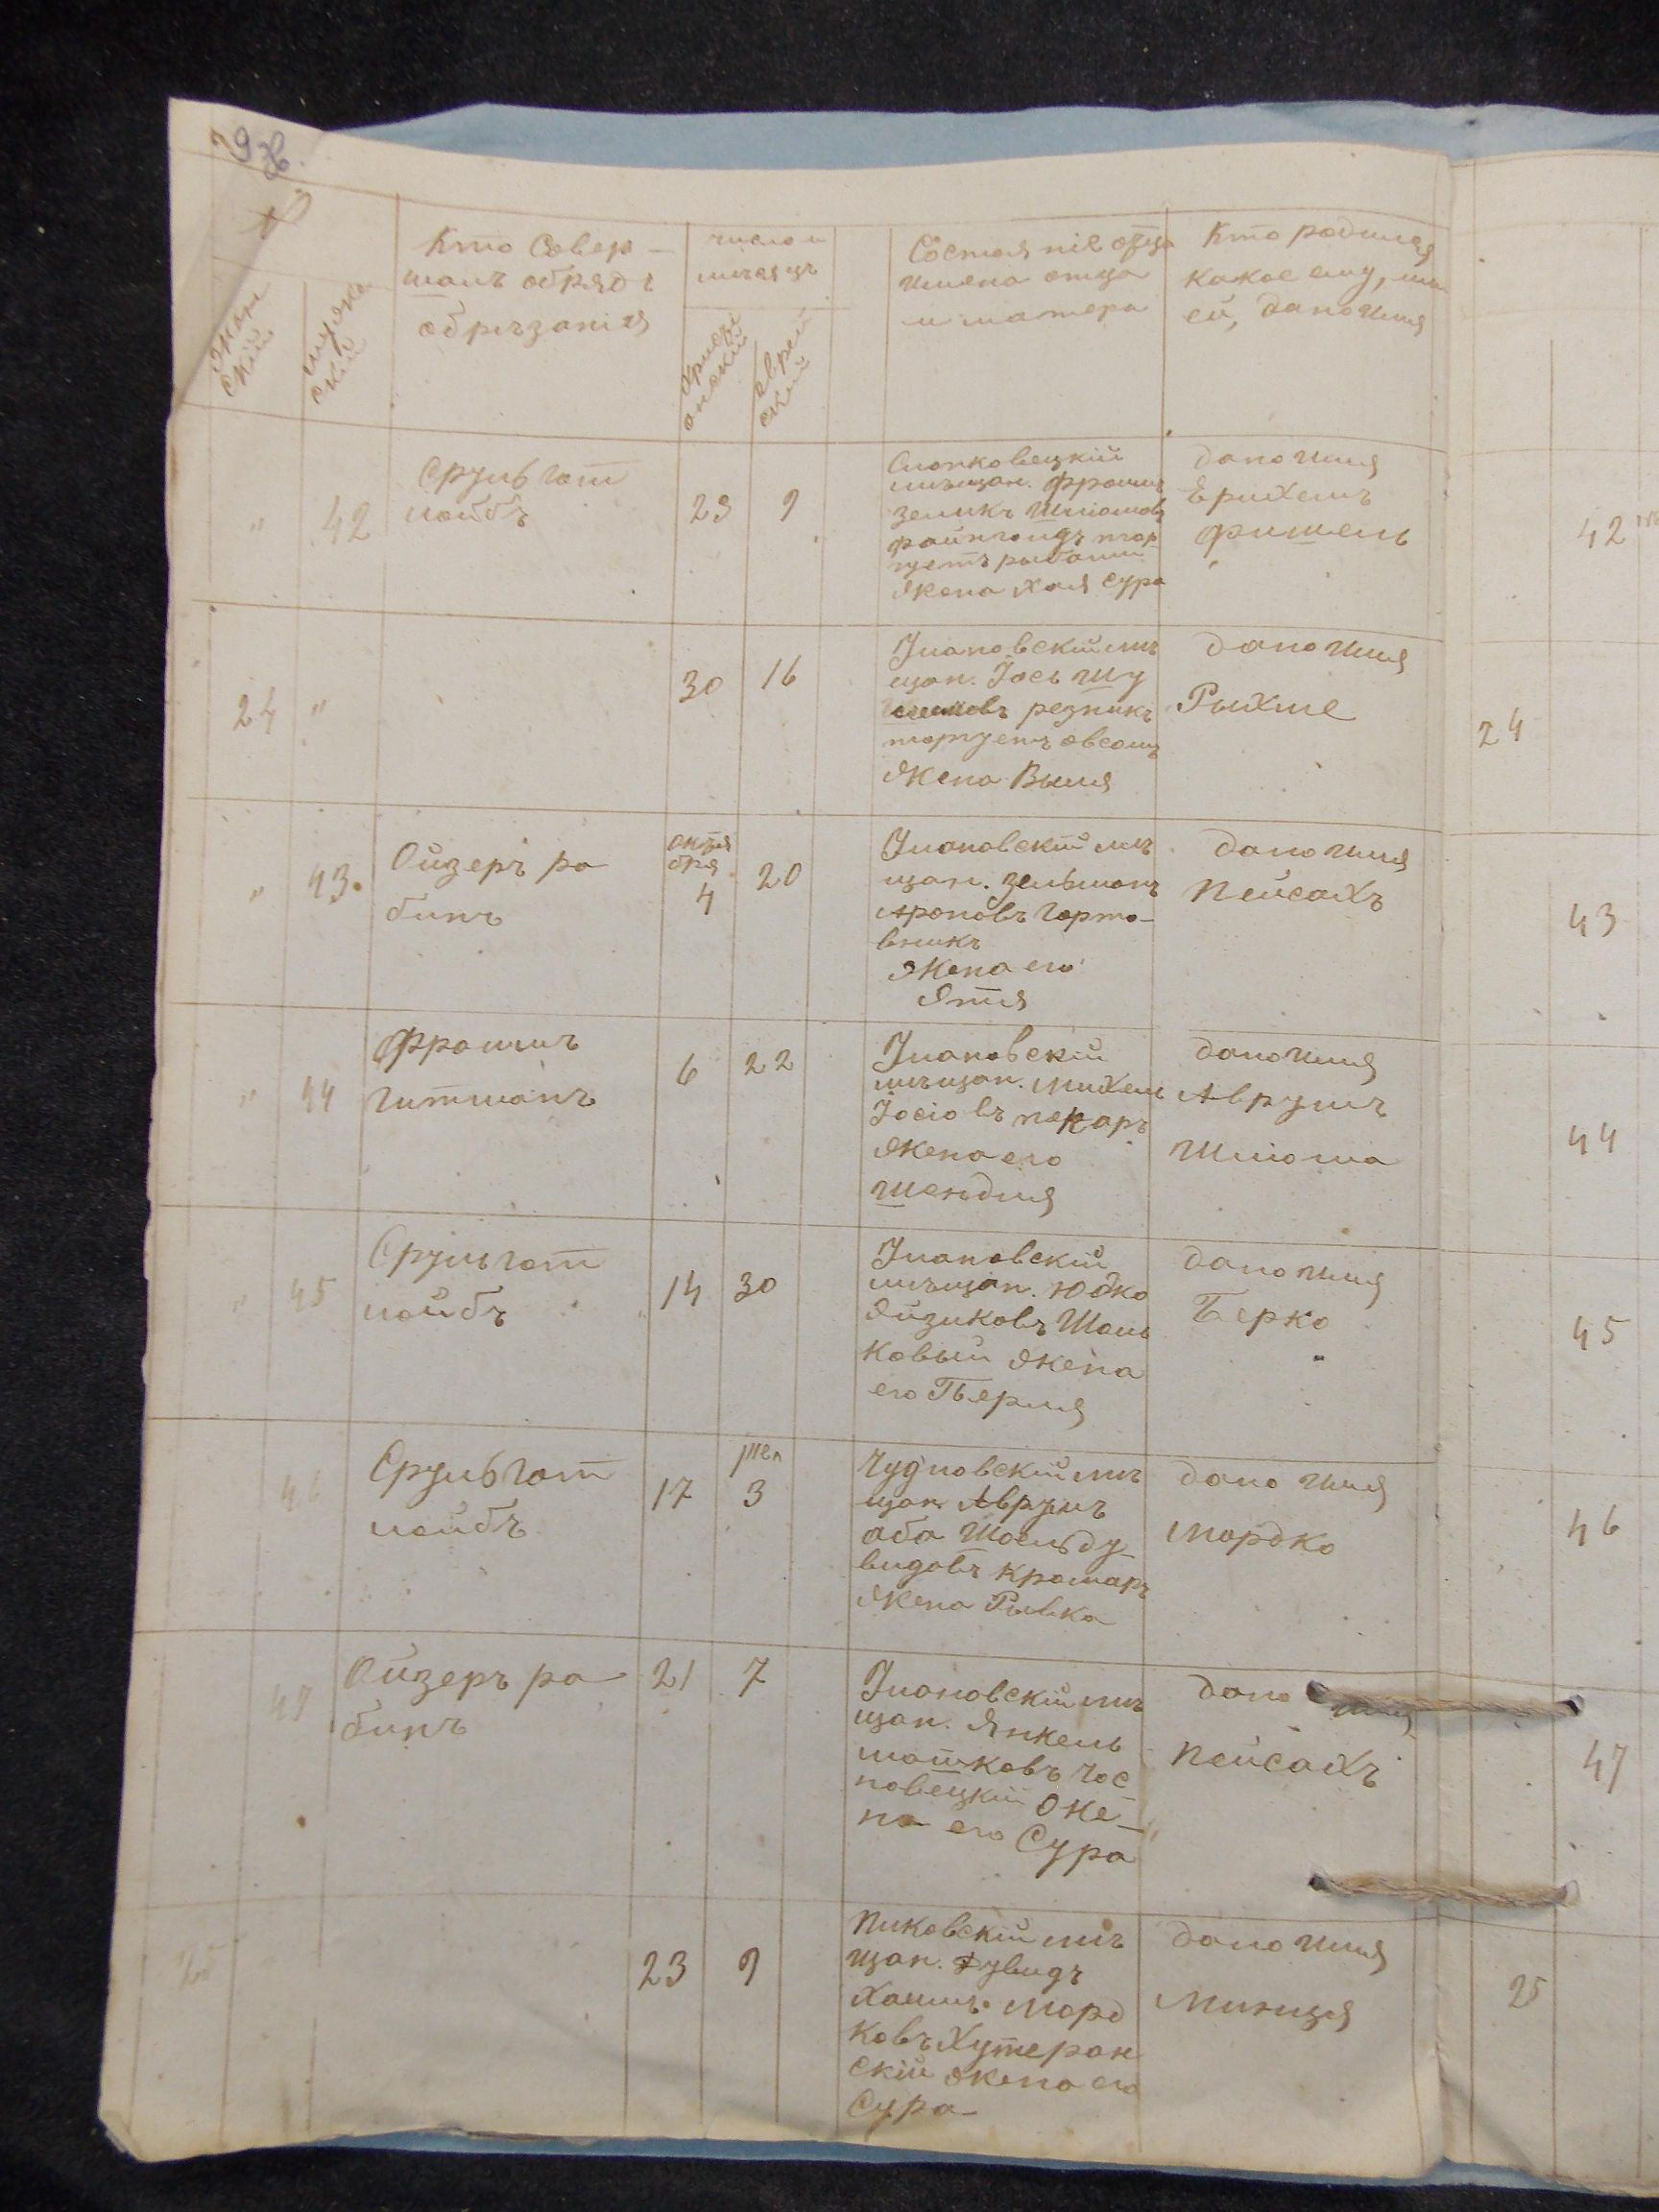 №
жен
скій
мужес
скій
Кто Совер-
шалъ обрядъ
обрѣзанія
число и
мѣсяцъ
христі
анскій
еврей
скій
Состояніе отца
имена отца
и матери
Кто родился
какое ему, или
ей, дано имя
" 42
Срульгот
лойбъ
29 9
мѣщан. Фроимъ
зеликъ Шліомовъ
гуетъ рыбами
жена Хая Сура
дано имя
Ерихемъ
Фишель
42
24 "
30 16
Улановскій мѣ
щан. Іось Шу
лимовъ резникъ
торгуетъ овсомъ
жена Выля
дано имя
Рыхле
24
" 43.
Ойзеръ ра
бинъ
октя
бря
4 20
Улановскій мѣ
щан. Зельманъ
Ароновъ Горто-
вникъ
жена его
Этя
дано имя
Пейсахъ
43
" 44
Фроимъ
Гитманъ
6 22
Улановскій
мѣщан. Михель
Іосіовъ пекарь
жена его
Шендля
дано имя
Аврумъ
Шліома
44
" 45
Срульгот
лойбъ
14 30
Улановскій
мѣщан. Юдко
Айзиковъ Шаль
ковый жена
его Перля
дано имя
Берко
45
46
Срульгот
лойбъ
17 3
Чудновскій мѣ
щан. Аврумъ
аба Шоель Ду
видовъ крамаръ
жена Рывка
дано имя
Мордко
46
47
Ойзеръ ра
бинъ
21 7
Улановскій мѣ
щан. Янкель
Мошковъ Гос
новецкій же-
на его Сура
дано имя
Пейсахъ
47
25
23 9
Пиковскій мѣ
щан. Дувидъ
Хаимъ Морд
ковъ Хутеран
скій жена его
Сура
дано имя
Минця
25